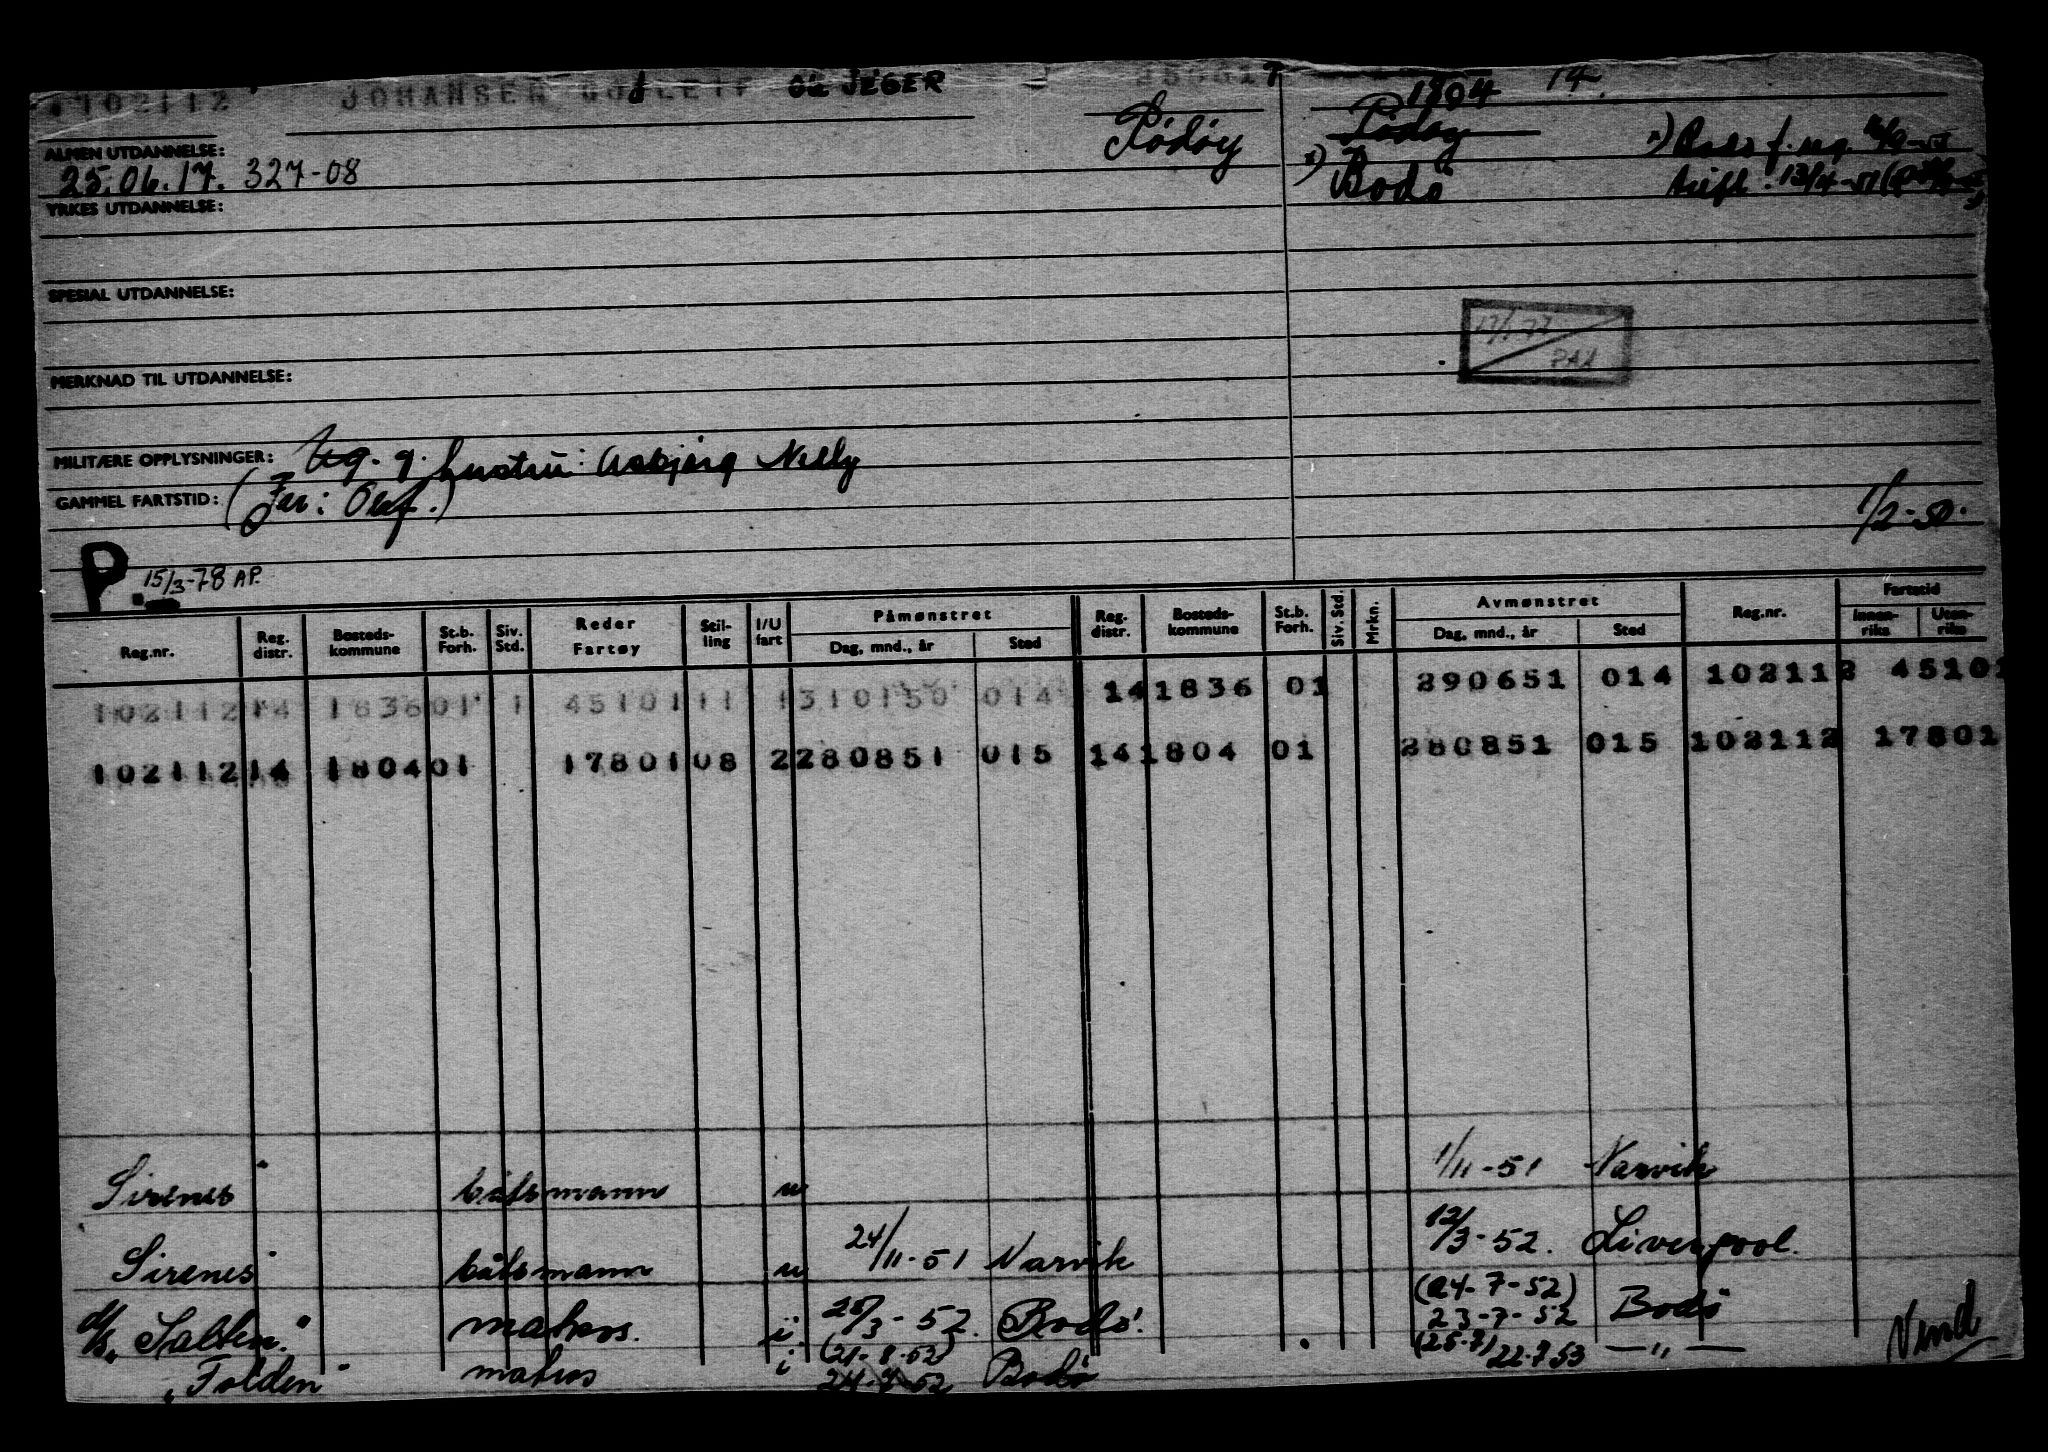 102112 JOHANSEN OLE JEGER 250617 1804 14.
Rødøy Rødøy
ALMEN UTDANNELSE:
25.06.17. 327-08
x) Bodø
x) Bodø f. reg.
YRKES UTDANNELSE:
SPESIAL UTDANNELSE:
17/1-77
PAX
MERKNAD TIL UTDANNELSE:
MILITÆRE OPPLYSNINGER: Ug. g. hustru: Asbjørg Nelly
GAMMEL FARTSTID: (Far: Olaf.)
1/2-50.
P. 15/3-78 AP.
Reg.nr. Reg. distr. Bosteds-kommune St.b. Forh. Siv. Std. Reder Fartøy Stil-ling I/U fart Påmønstret Dag, mnd., år Sted Reg. distr. Bosteds-kommune St.b. Forh. Siv. Std. Mrkn. Avmønstret Dag, mnd., år Sted Reg.nr. Fartstid Innen-riks Uten-riks
102112 14 1836 01 1 45101 11 1 310150 014 14 1836 01 290651 014 102112 45101
102112 14 1804 01 17801 08 2 280851 015 14 1804 01 280851 015 102112 17801
Sirenes båtsmann u 1/11-51 Narvik
Sirenes båtsmann u 24/11-51 Narvik 12/3-52. Liverpool.
(24-7-52)
d/s. Salten." matros. i 28/3-52. Bodø. 23-7-52 Bodø
(21-8-52) (25-7)
"Folden" matros i 24-7-52 Bodø 22.7.53 — " —
Vend